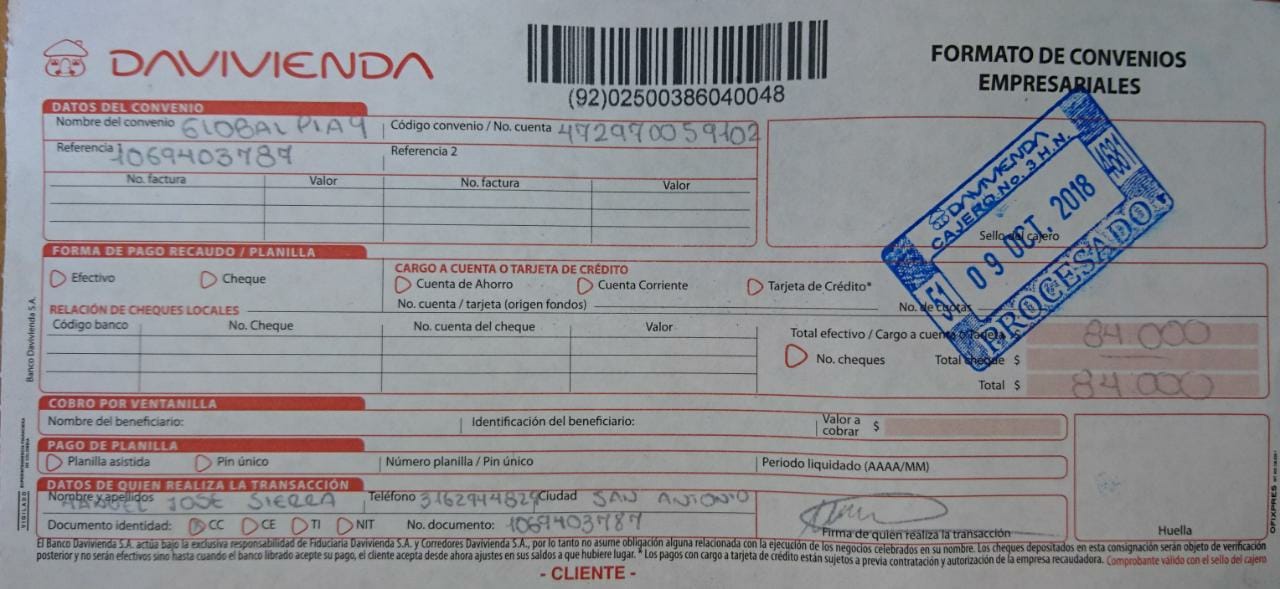 DAVIVIENDA
(92)02500386040048
FORMATO DE CONVENIOS
EMPRESARIALES
DATOS DEL CONVENIO
Nombre del convenio GLOBAL PLAY Código convenio / No. cuenta 472970059102
Referencia 1 1069403787 Referencia 2
No. factura Valor No. factura Valor
Sello del cajero
DAVIVIENDA
CAJERO No. 3 H.N.
51 09 OCT. 2018 4681
PROCESADO
FORMA DE PAGO RECAUDO / PLANILLA
Efectivo Cheque
CARGO A CUENTA O TARJETA DE CRÉDITO
Cuenta de Ahorro Cuenta Corriente Tarjeta de Crédito*
No. cuenta / tarjeta (origen fondos) No. de cuotas
RELACIÓN DE CHEQUES LOCALES
Código banco No. Cheque No. cuenta del cheque Valor
Total efectivo / Cargo a cuenta o tarjeta $ 84.000
No. cheques Total cheque $
Total $ 84.000
COBRO POR VENTANILLA
Nombre del beneficiario: Identificación del beneficiario: Valor a cobrar $
PAGO DE PLANILLA
Planilla asistida Pin único Número planilla / Pin único Periodo liquidado (AAAA/MM)
DATOS DE QUIEN REALIZA LA TRANSACCIÓN
Nombre y apellidos MANUEL JOSE SIERRA Teléfono 3162944829 Ciudad SAN ANTONIO
Documento identidad: CC CE TI NIT No. documento: 1069403787
Firma de quien realiza la transacción
Huella
El Banco Davivienda S.A. actúa bajo la exclusiva responsabilidad de Fiduciaria Davivienda S.A. y Corredores Davivienda S.A., por lo tanto no asume obligación alguna relacionada con la ejecución de los negocios celebrados en su nombre. Los cheques depositados en esta consignación serán objeto de verificación
posterior y no serán efectivos sino hasta cuando el banco librado acepte su pago, el cliente acepta desde ahora ajustes en sus saldos a que hubiere lugar. * Los pagos con cargo a tarjeta de crédito están sujetos a previa contratación y autorización de la empresa recaudadora. Comprobante válido con el sello del cajero
- CLIENTE -
Banco Davivienda S.A.
VIGILADO SUPERINTENDENCIA FINANCIERA DE COLOMBIA
OFIXPRES